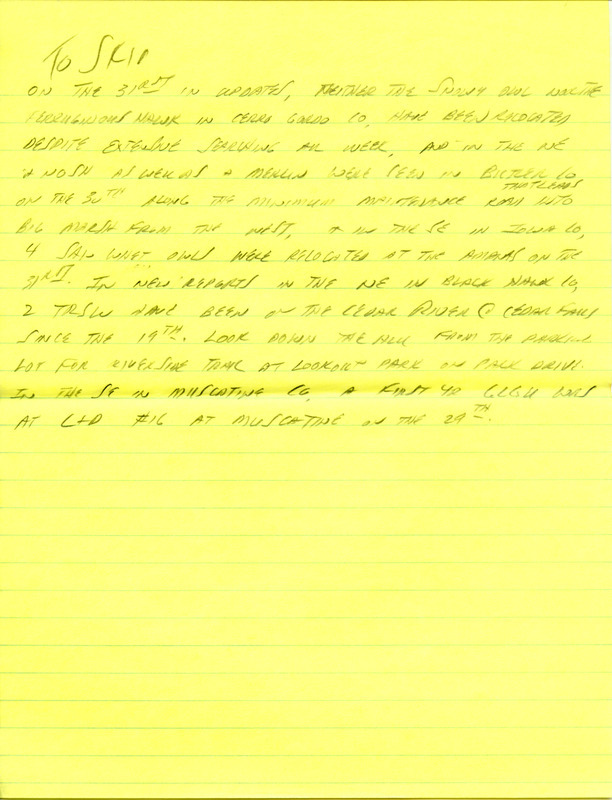 TO SKIP
ON THE 31RST IN UPDATES, NEITHER THE SNOWY OWL NOR THE
FERRUGINOUS HAWK IN CERRO GORDO CO, HAVE BEEN RELOCATED
DESPITE EXTENSIVE SEARCHING ALL WEEK, AND IN THE NE
A NOSH AS WELL AS A MERLIN WERE SEEN IN BUTLER CO
ON THE 30TH ALONG THE MINIMUM MAINTENANCE ROAD THAT LEADS INTO
BIG MARSH FROM THE WEST, + IN THE SE IN IOWA CO,
4 SAW WHET OWLS WERE RELOCATED AT THE AMANAS ON THE
31RST. IN NEW REPORTS IN THE NE IN BLACK HAWK CO,
2 TRSW HAVE BEEN ON THE CEDAR RIVER @ CEDAR FALLS
SINCE THE 19TH. LOOK DOWN THE HILL FROM THE PARKING
LOT FOR RIVERSIDE TRAIL AT LOOKOUT PARK ON PARK DRIVE.
IN THE SE IN MUSCATINE CO, A FIRST YR GLGU WAS
AT L+D #16 AT MUSCATINE ON THE 29TH.